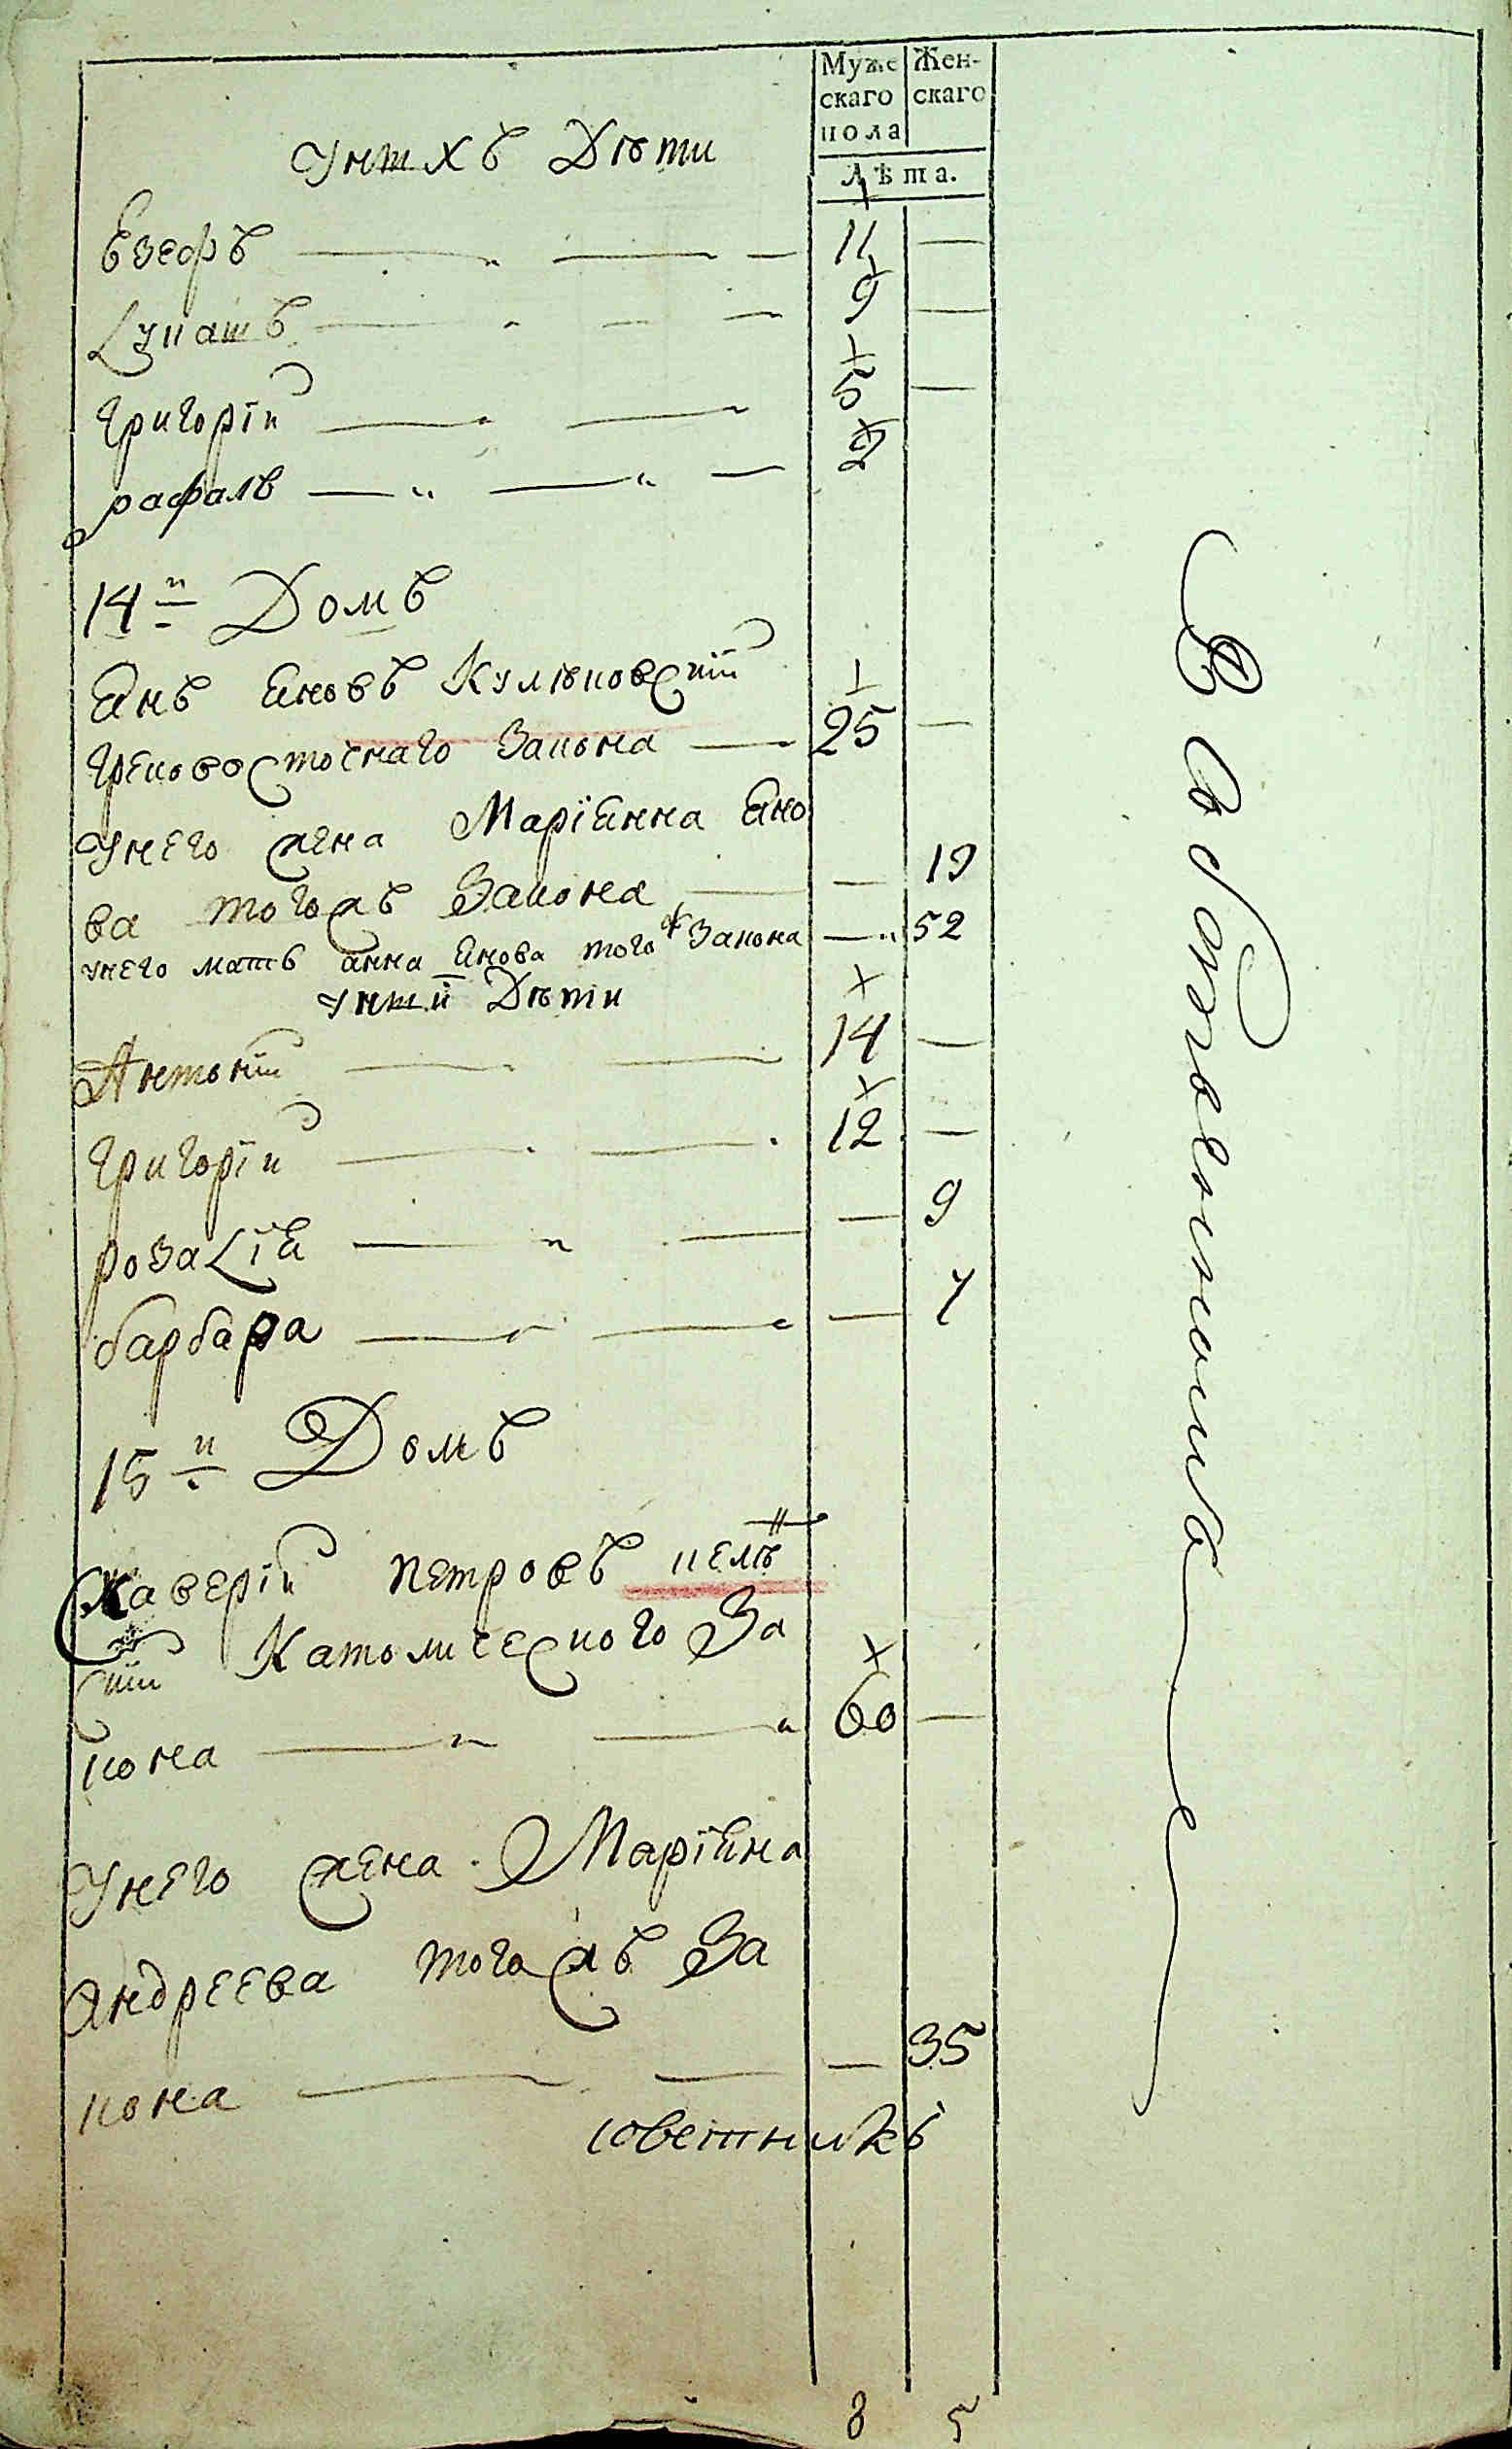 Муже
скаго
пола
Жен-
скаго
Лѣта.
У нихъ Дѣти
Езефъ 11 —
Лукашъ 9 —
Григорій 5 —
рафалъ 2
14й Домъ
Янъ Яновъ Кульковскій
Грековосточнаго Закона — 25 —
У него жена Маріянна Яно
ва тогожъ Закона — — 19
у него мать анна Янова того ж Закона — 52
У ний Дѣти
Антоній 14 —
Григорій 12 —
розалія — 9
барбара — 7
15й Домъ
Ксаверій петровъ
скій Католического За
кона 60 —
У него жена Маріяна
Андреева тогожъ За
кона — 35
совѣтникъ
8 5